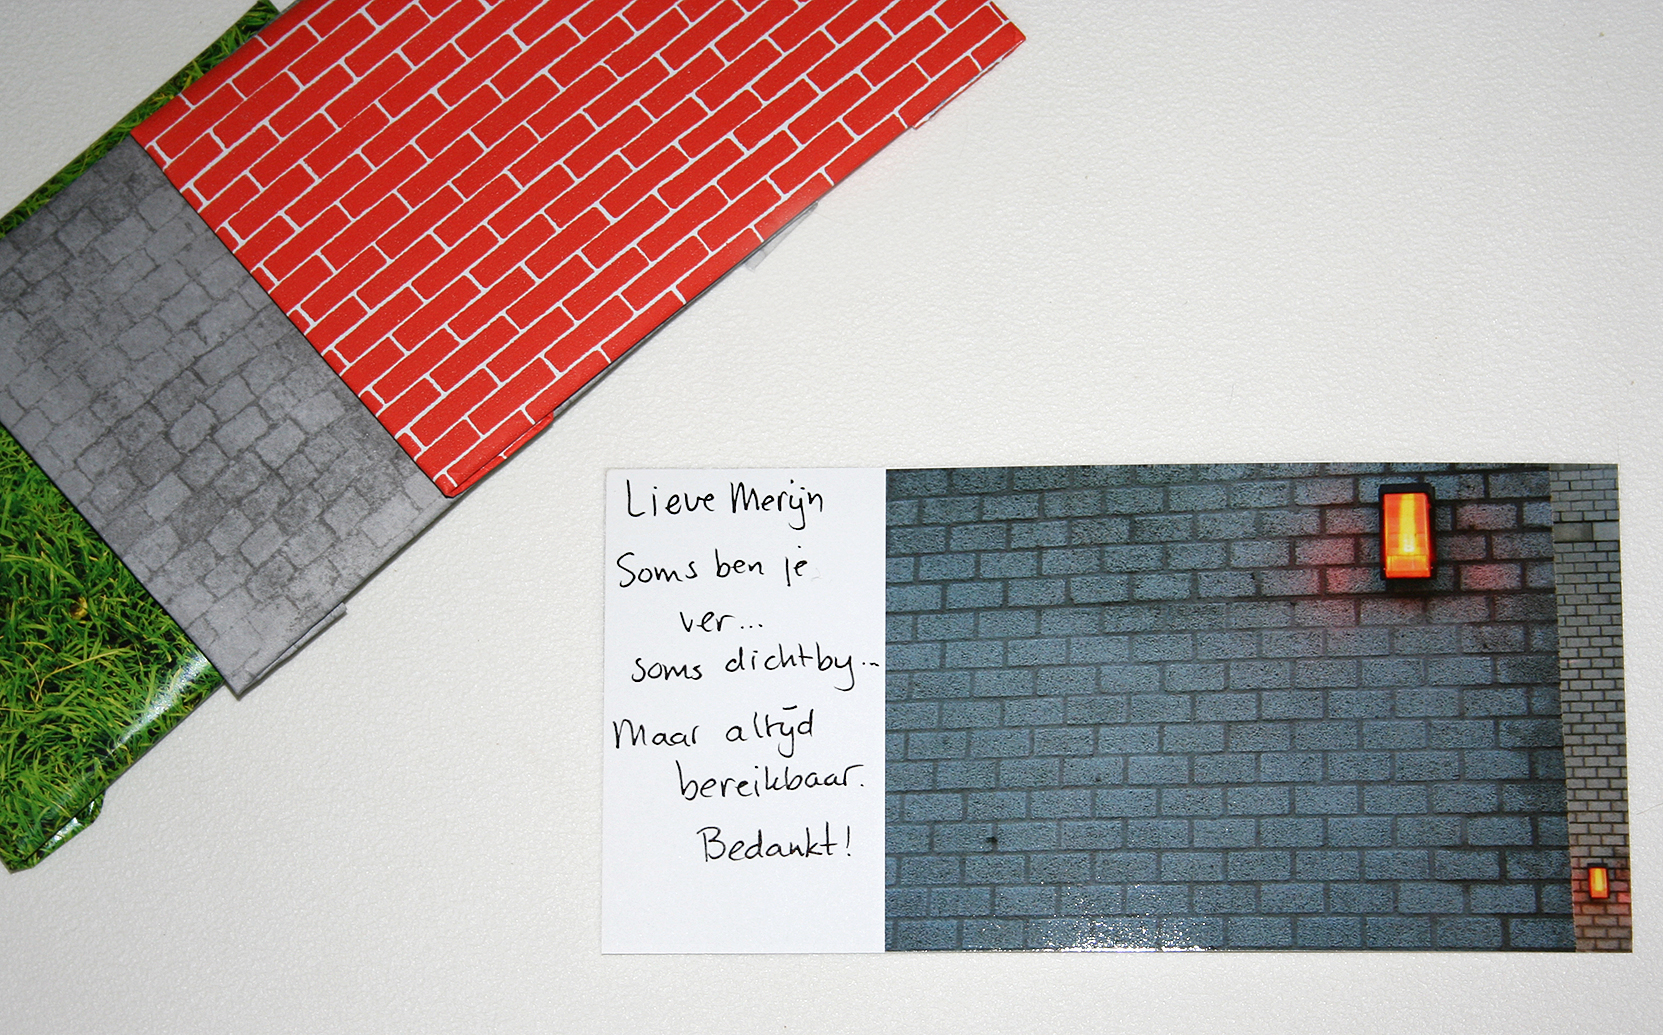 Lieve Merijn
Soms ben je
ver...
soms dichtby...
Maar altijd
bereikbaar.
Bedankt!